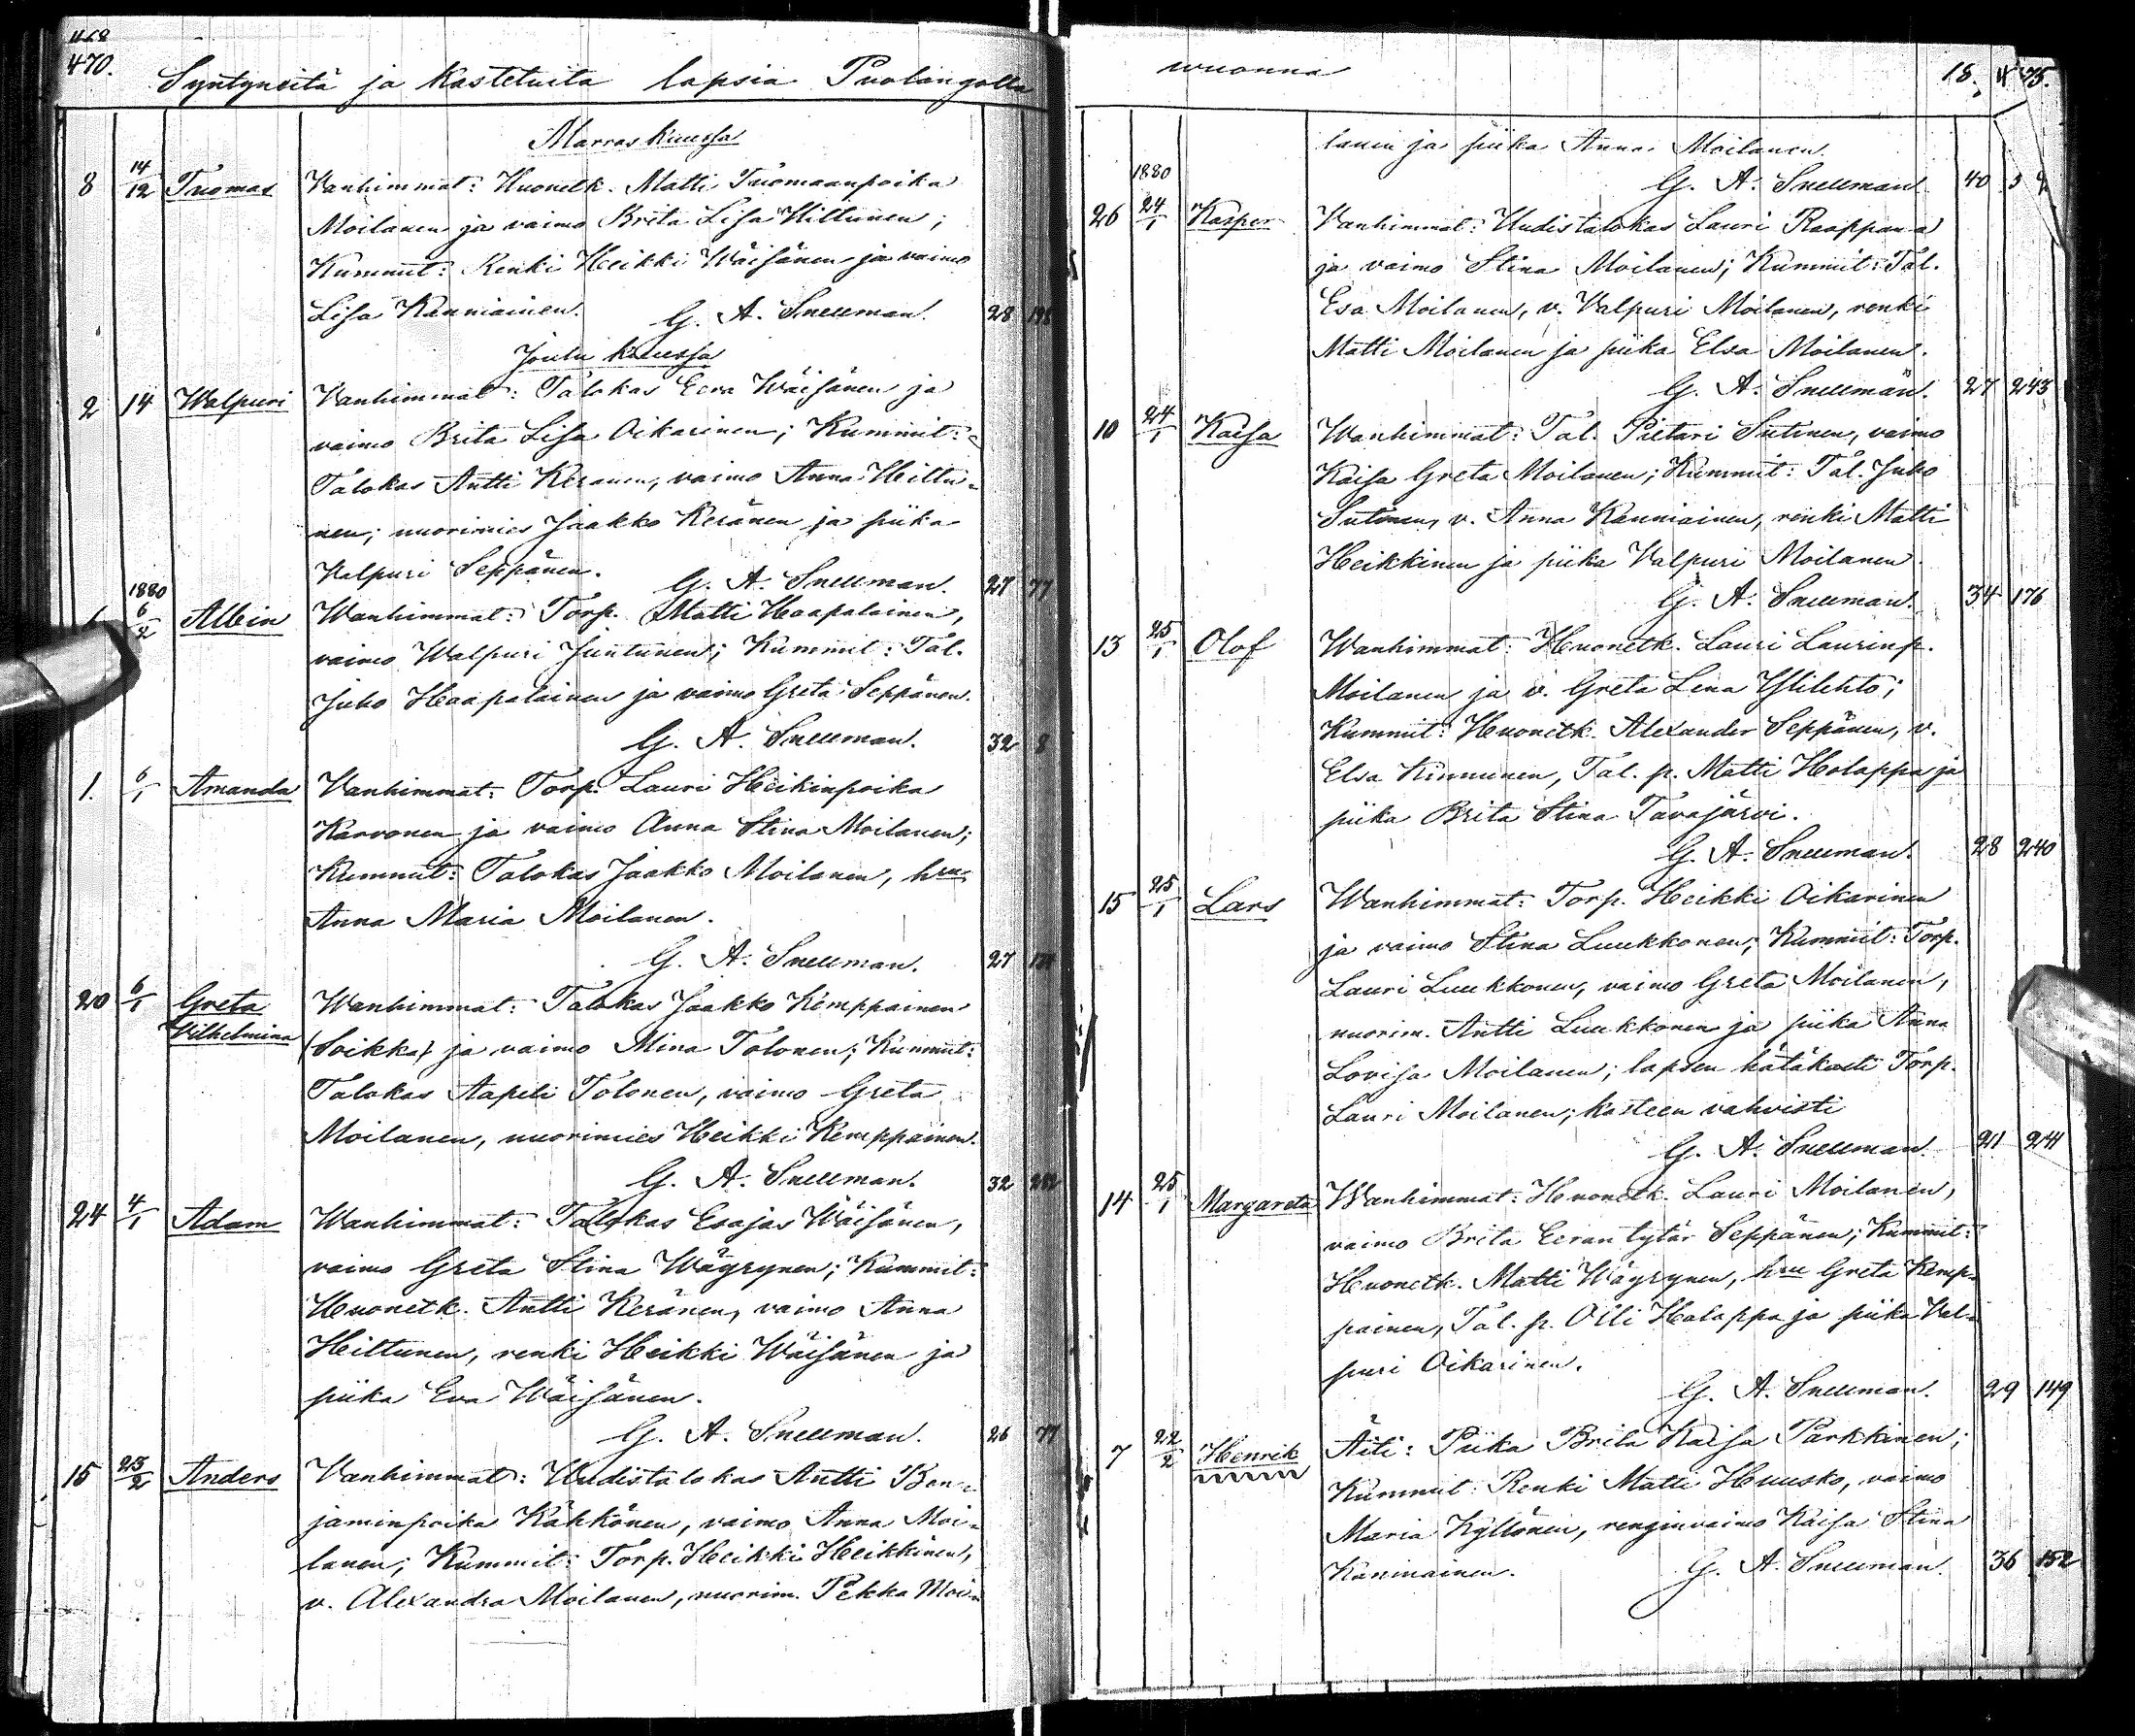 470.
Syntyneitä ja kastetuita lapsia Puolangolla
Marraskuussa
8 14/12 Tuomas Vanhimmat: Huonetk. Matti Tuomaanpoika
Moilanen ja vaimo Brita Lisa Hiltunen;
Kummit: Renki Heikki Wäisänen ja vaimo
Lisa Kanniainen. G. A. Snellman. 28
Joulukuussa
2 14 Walpuri Vanhimmat: Talokas Eera Wäisänen ja
vaimo Brita Lisa Oikarinen; Kummit:
Talokas Antti Keränen, vaimo Anna Hiltu-
nen; nuorimies Jaakko Keränen ja piika
Valpuri Seppänen. G. A. Snellman. 27 77
1880
6/2 Albin Wanhimmat: Torp. Matti Haapalainen,
vaimo Walpuri Juntunen; Kummit: Tal.
Juho Haapalainen ja vaimo Greta Seppänen.
G. A. Snellman. 32 8
1. 6/1 Amanda Vanhimmat: Torp. Lauri Heikinpoika
Karvonen ja vaimo Anna Stina Moilanen;
Kummit: Talokas Jaakko Moilanen, hru
Anna Maria Moilanen.
G. A. Snellman. 27
20 6/1 Greta Wanhimmat: Talokas Jaakko Kemppainen
Vilhelmina (Soikka) ja vaimo Mina Tolonen; Kummit:
Talokas Aapeli Tolonen, vaimo Greta
Moilanen, nuorimies Heikki Kemppainen.
G. A. Snellman. 32
24 4/1 Adam Wanhimmat: Talokas Esajas Wäisänen,
vaimo Greta Stina Wäyrynen; Kummit:
Huonetk. Antti Keränen, vaimo Anna
Hiltunen, renki Heikki Wäisänen ja
piika Eva Wäisänen.
G. A. Snellman. 26 77
15 23/2 Anders Vanhimmat: Uudistalokas Antti Ben-
jaminpoika Kähkönen, vaimo Anna Moi-
lanen; Kummit: Torp. Heikki Heikkinen,
v. Alexandra Moilanen, nuorim. Pekka Moi-
wuonna 18
lanen ja piika Anna Moilanen.
G. A. Snellman. 40
1880
26 24/1 Kasper Vanhimmat: Uudistalokas Lauri Raappana
ja vaimo Stina Moilanen; Kummit: Tal.
Esa Moilanen, v. Valpuri Moilanen, renki
Matti Moilanen ja piika Elsa Moilanen.
G. A. Snellman. 27 243
10 24/1 Kaisa Wanhimmat: Tal. Pietari Sutinen, vaimo
Kaisa Greta Moilanen; Kummit: Tal. Juho
Sutinen, v. Anna Kanniainen, renki Matti
Heikkinen ja piika Valpuri Moilanen.
G. A. Snellman. 34 176
13 25/1 Olof Wanhimmat: Huonetk. Lauri Laurinp.
Moilanen ja v. Greta Lena Ylilehto;
Kummit: Huonetk. Alexander Seppänen, v.
Elsa Kinnunen, Tal. p. Matti Holappa ja
piika Brita Stina Tavajärvi.
G. A. Snellman. 28 240
15 25/1 Lars Wanhimmat: Torp. Heikki Oikarinen
ja vaimo Stina Luukkonen; Kummit: Torp.
Lauri Luukkonen, vaimo Greta Moilanen,
nuorim. Antti Luukkonen ja piika Anna
Lovisa Moilanen; lapsen hätäkasti Torp.
Lauri Moilanen; kasteen vahvisti
G. A. Snellman. 21 241
14 25/1 Margareta Wanhimmat: Huonetk. Lauri Moilanen,
vaimo Brita Eerantytär Seppänen; Kummit:
Huonetk. Matti Wäyrynen, hru Greta Kemp-
painen, Tal. p. Olli Holappa ja piika Val-
puri Oikarinen.
G. A. Snellman. 29 149
7 22/2 Henrik Äiti: Piika Brita Kaisa Parkkinen;
Kummit: Renki Matti Huusko, vaimo
Maria Kyllönen, renginvaimo Kaisa Stina
Kanniainen. G. A. Snellman. 36 152